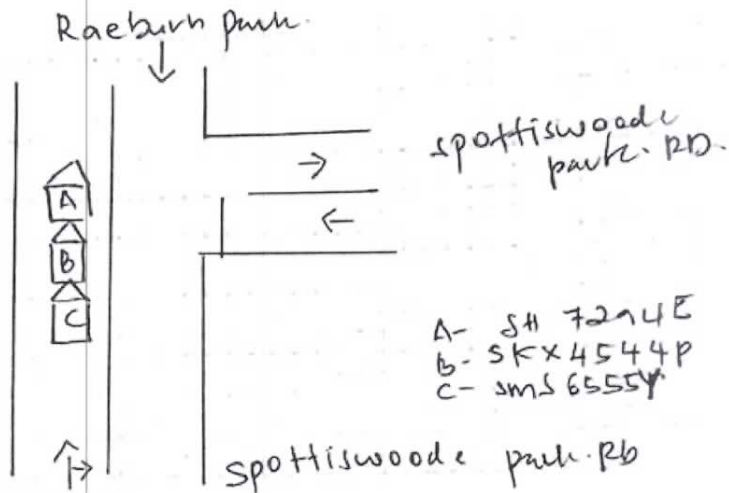 Raeburn Park.
spottiswoode
park. RD.
A
B
C
A- SH 7294E
B- SKX4544P
C- SMS 6555Y
Spottiswoode park. Rd